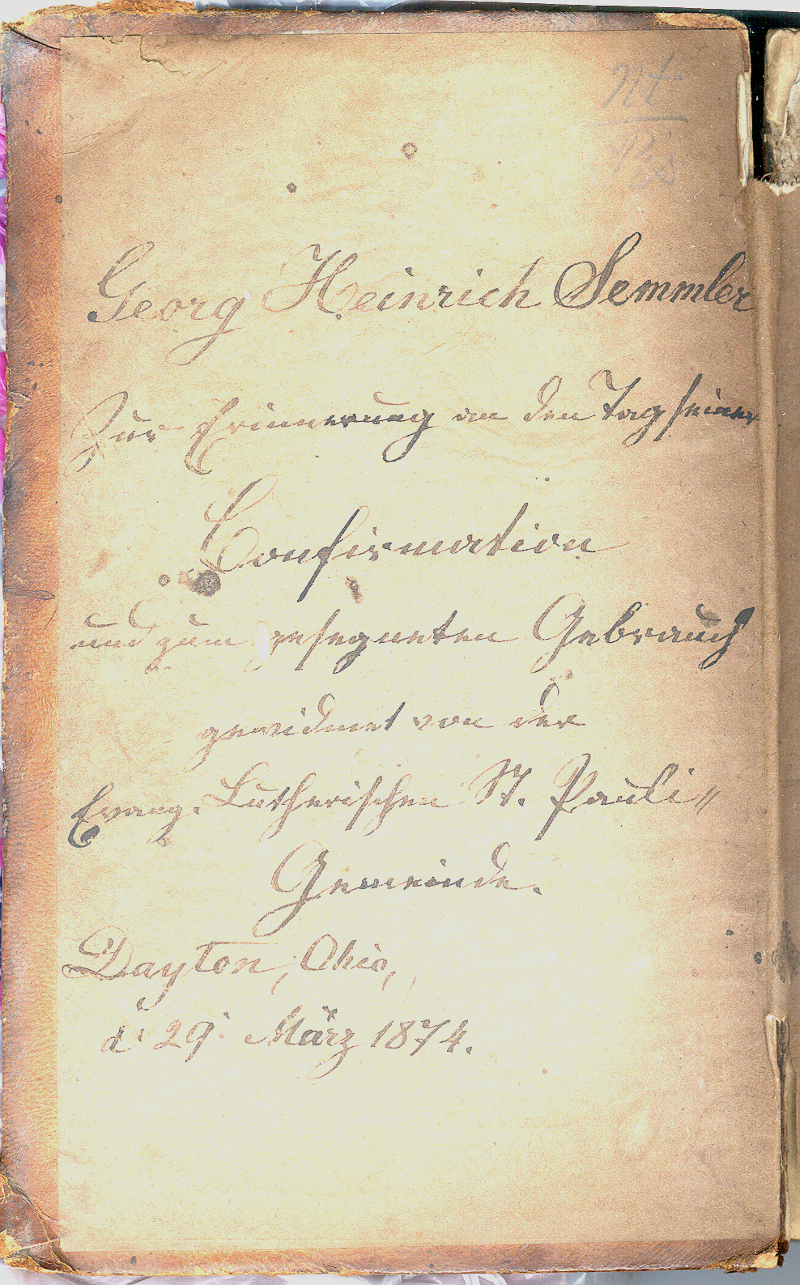 Georg Heinrich Semmler
Zur Erinnerung an den Tag seiner
Confirmation
und zum gesegneten Gebrauch
gewidmet von der
Evang. Lutherischen St. Pauli=
Gemeinde.
Dayton, Ohio,
d. 29. März 1874.